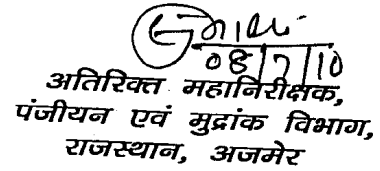 08/7/10
अतिरिक्त महानिरीक्षक,
पंजीयन एवं मुद्रांक विभाग,
राजस्थान, अजमेर